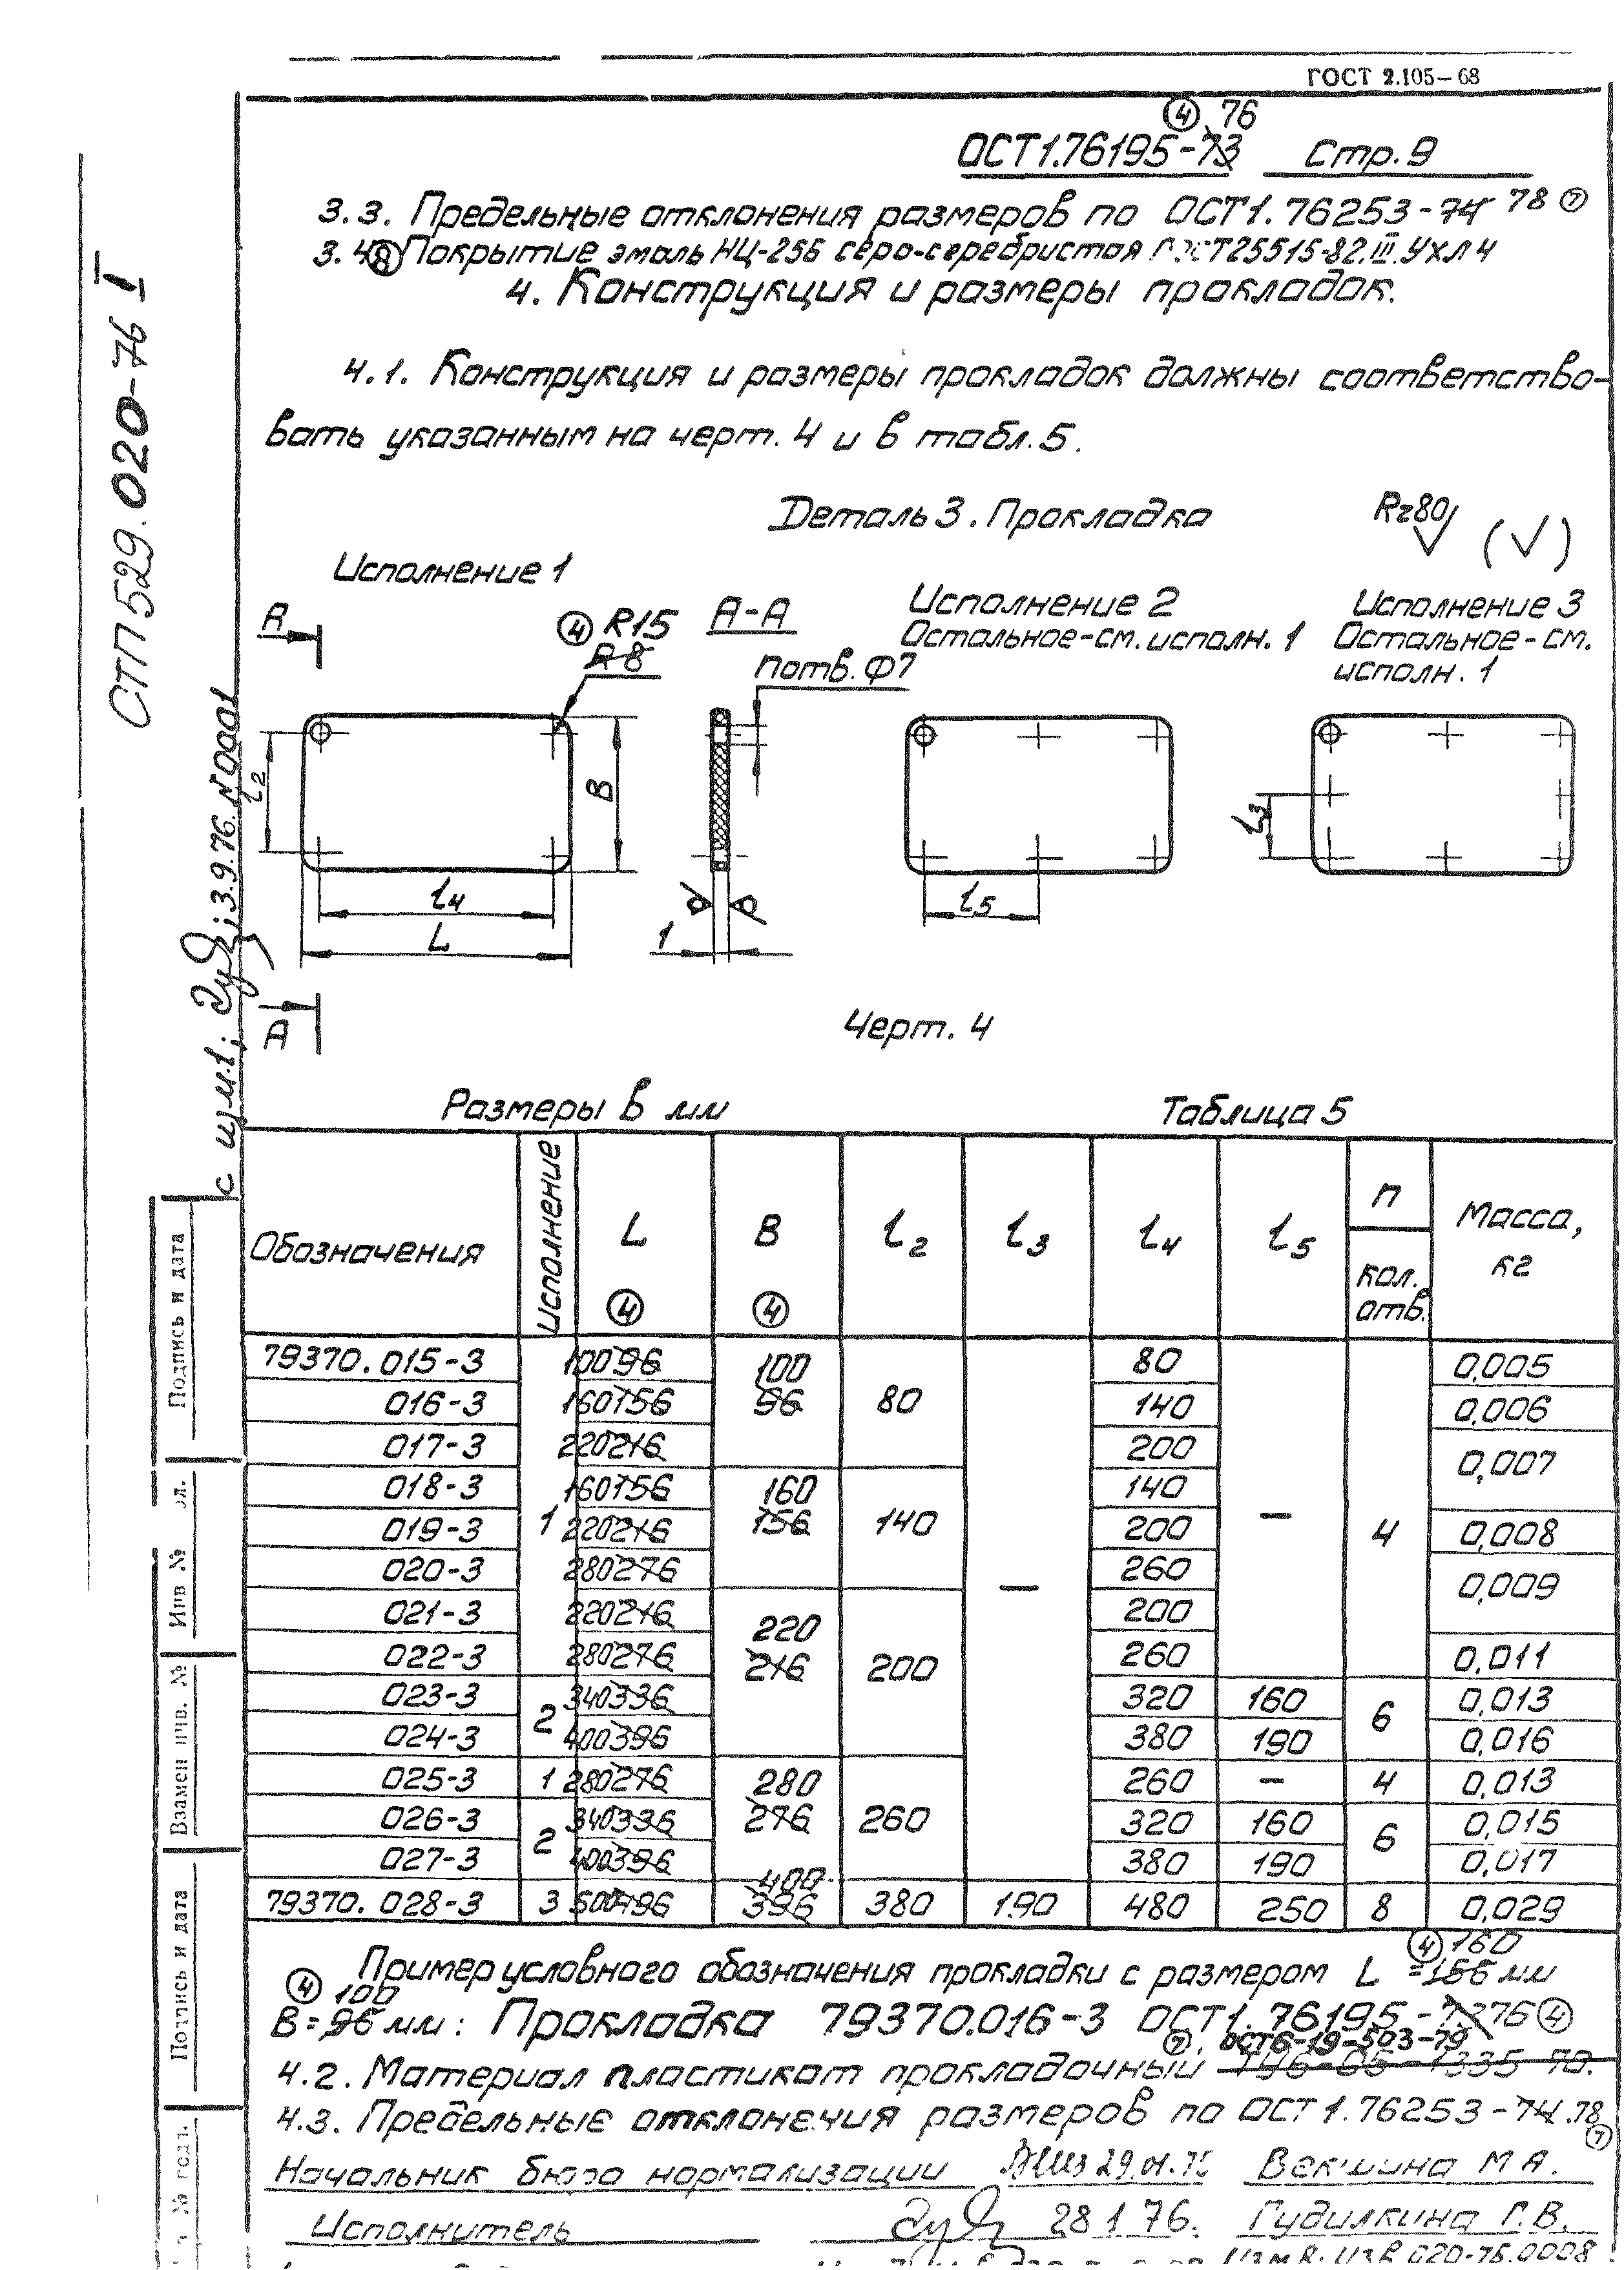 ГОСТ 2.105-68
④ 76
ОСТ1.76195-73 Стр. 9
3.3. Предельные отклонения размеров по ОСТ1.76253-74 78 ⑦
3.4 ⑧ Покрытие эмаль НЦ-25Б серо-серебристая ГОСТ25515-82.III.УХЛ4
4. Конструкция и размеры прокладок.
4.1. Конструкция и размеры прокладок должны соответство-
вать указанным на черт. 4 и в табл. 5.
Деталь 3. Прокладка
Rz80 (√)
Исполнение 1
А
④ R15
R8
А-А
n отв. Ф7
Исполнение 2
Остальное-см. исполн. 1
Исполнение 3
Остальное-см.
исполн. 1
l2
B
l4
L
1
l5
l3
А
Черт. 4
Размеры в мм Таблица 5
Обозначения Исполнение L ④ B ④ l2 l3 l4 l5 n кол. отв. Масса, кг
79370.015-3 1 100 96 100 96 80 — 80 — 4 0,005
016-3 160 156 140 0,006
017-3 220 216 200 0,007
018-3 160 156 160 156 140 140
019-3 220 216 200 0,008
020-3 280 276 260 0,009
021-3 220 216 220 216 200 200
022-3 280 276 260 0,011
023-3 2 340 336 320 160 6 0,013
024-3 400 396 380 190 0,016
025-3 1 280 276 280 276 260 260 — 4 0,013
026-3 2 340 336 320 160 6 0,015
027-3 400 396 380 190 0,017
79370.028-3 3 500 496 400 396 380 190 480 250 8 0,029
④ 160
Пример условного обозначения прокладки с размером L = 156 мм
④ 100
B = 96 мм: Прокладка 79370.016-3 ОСТ1.76195-73 76 ④
⑦ ОСТ6-19-503-79
4.2. Материал пластикат прокладочный ТУ6-05-1335-70.
4.3. Предельные отклонения размеров по ОСТ1.76253-74.78
⑦
Начальник бюро нормализации 29.01.75 Векшина М А.
Исполнитель 28 1 76. Гудилкина Г.В.
Изм 8. Изв 020-76.0008
СТП 529.020-76 I
с изм.1; 3.9.76. N0001
Подпись и дата
Инв №
Взамен инв. №
Подпись и дата
№ подл.